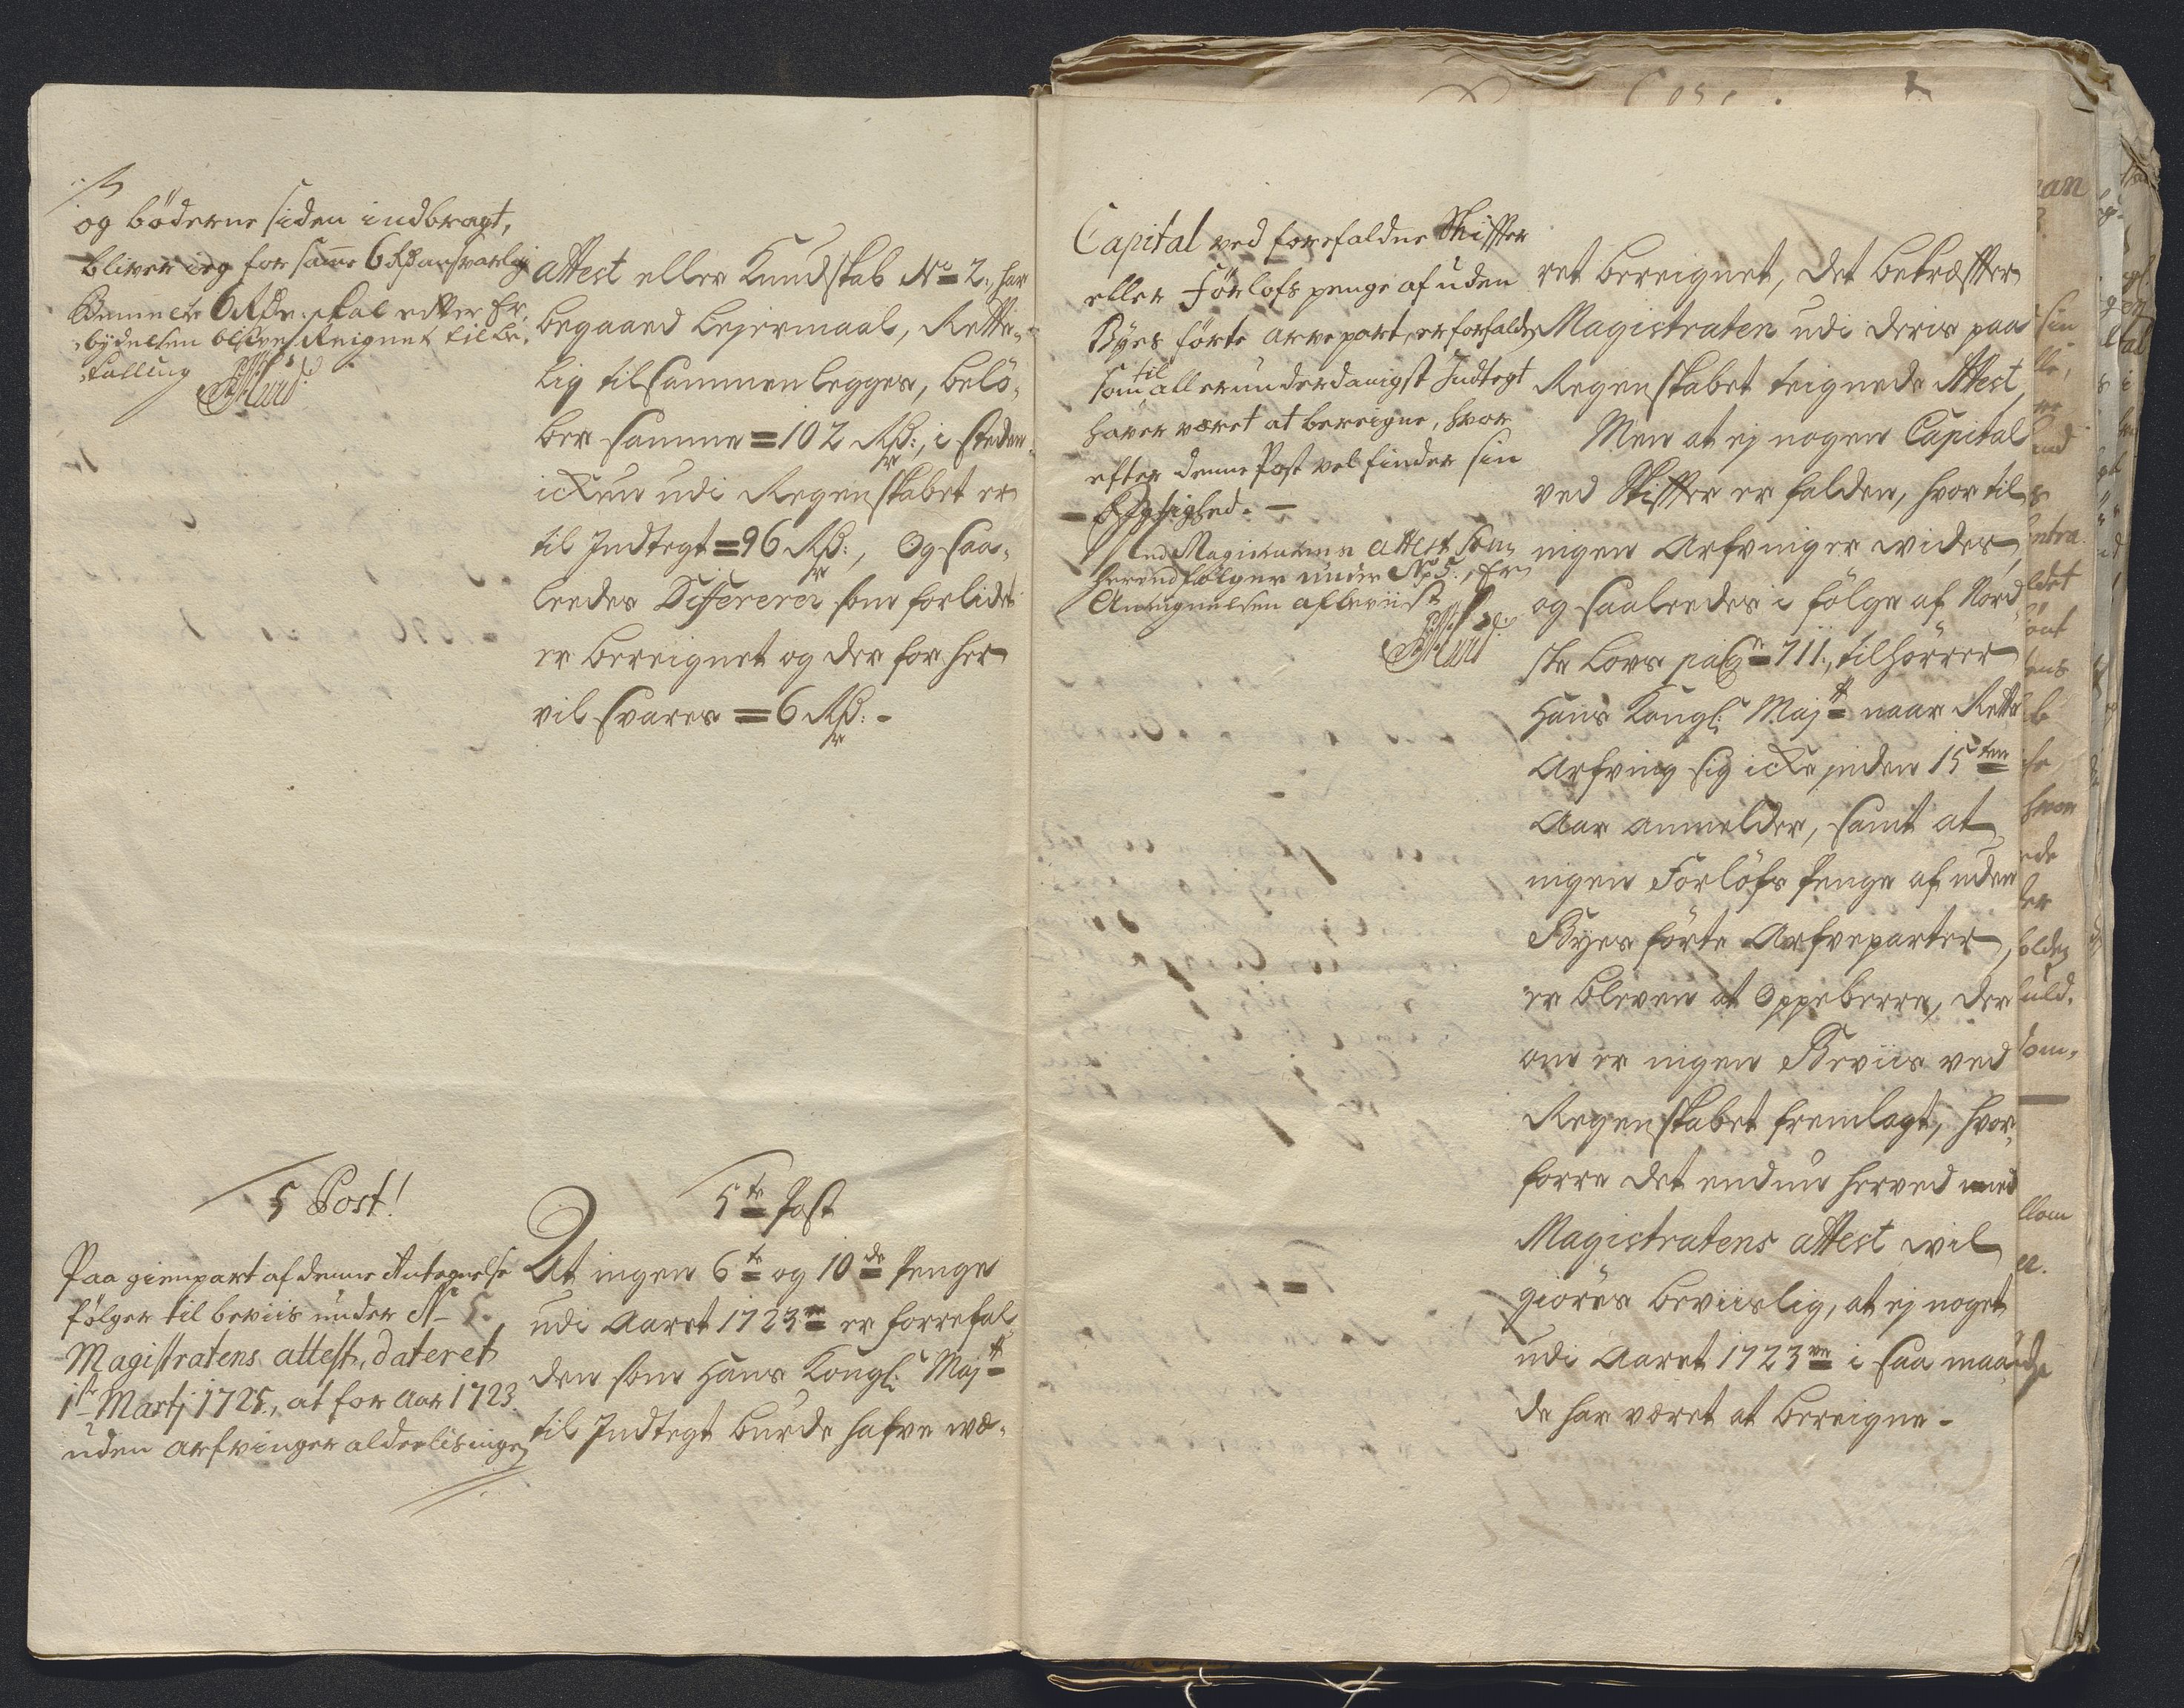 og böderne siden indbragt,
bliver ieg for samme 6 Rdr ansvarlig
Bemeelte 6 Rdr: skal efter Er-
bydelsen blive Reignet til be-
taling
attest eller Kundskab No 2, har
begaaed Leyermaal, Rette-
lig tilsammen legges, belö-
ber samme = 102 Rdr:, i steden
ickun udi Regenskabet er
til Indtegt = 96 Rdr:, Og saa-
leedes Differerer som forlidet
er bereignet og der for her
vil svares = 6 Rdr: -
5 Post!
Paa gienpart af denne Antegnelse
følger til beviis under N 5.
Magistratens attest, dateret
1st Martj 1725, at for Aar 1723
uden arfvinger aldeelis ingen
5te Post
At ingen 6te og 10de Penge
udi Aaret 1723ve er forrefal-
den som Hans Kongl: Majtt
til Indtegt burde hafve wæ-
Capital ved forefaldne Skiffter
eller Förlofs penge af uden
Byes förte arvepart, er forfalden
som til allerunderdanigst Indtegt
haver været at bereigne, hvor
efter denne Post vel finder sin
Rigtighed. -
Ved Magistratens attest som
herved følger under No 5., Er
Antegnelsen afbeviist
ret bereignet, det bekræffter
Magistraten udi deris paa
Regenskabet teignede Attest,
Men at ej nogen Capital
ved Skiffter er falden, hvor til
ingen Arfvinger wides,
og saaleedes i fölge af Nord-
ske Lovs pag = 711., tilhörrer
Hans Kongl: Majtt naar Rette
Arfving sig icke inden 15ten
Aar anmelder, samt at
ingen Forlöfs Penge af uden
Byes förte Arfveparter,
er bleven at Oppeberre, der
om er ingen Beviis ved
Regenskabet fremlagt, hvor-
forre det endnu herved med
Magistratens attest wil
giöres beviislig, at ej noget
udi Aaret 1723ve i saa maa-
de har været at bereigne -